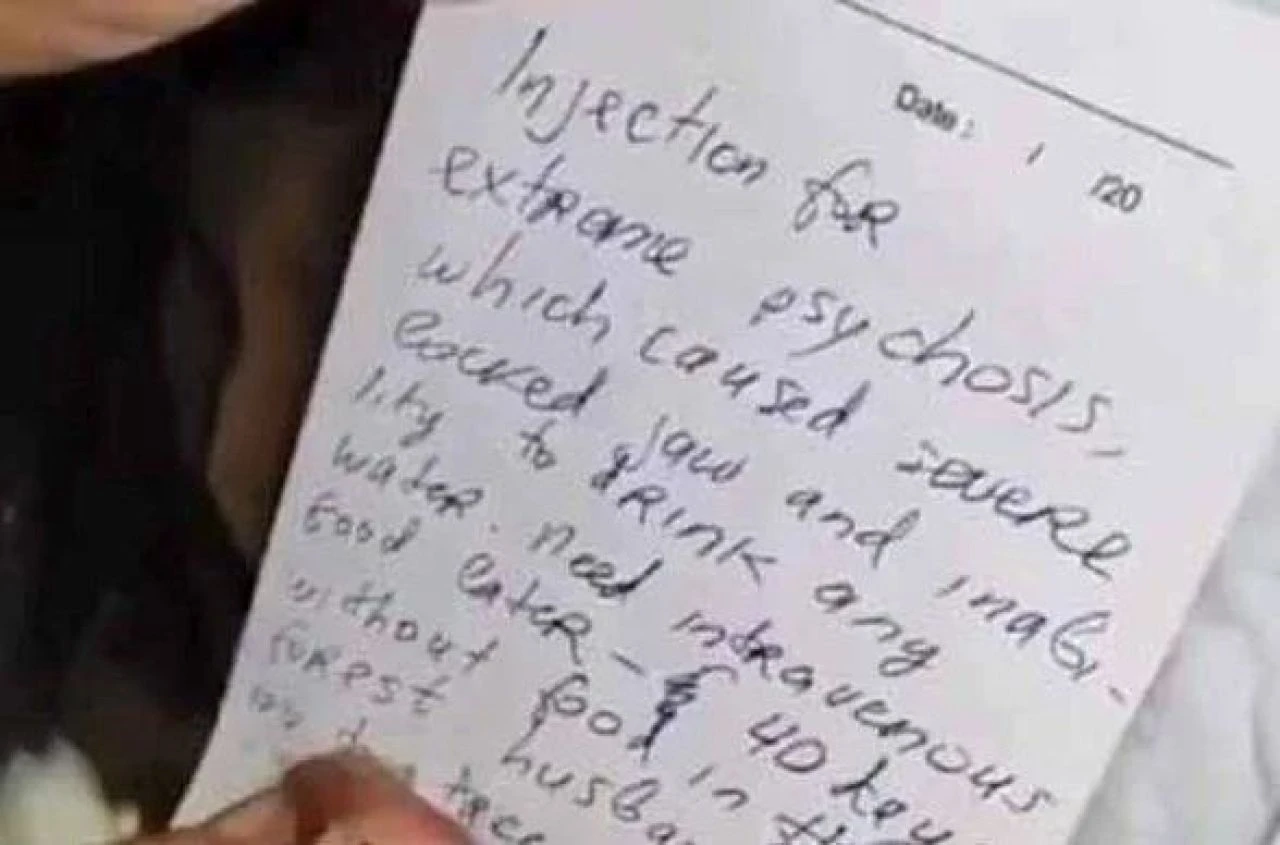 Date: / /20
Injection for
extrame psychosis,
which caused severe
locked jaw and inabi-
lity to drink any
water. Need intravenous
food later – 40
without food in
forest husba